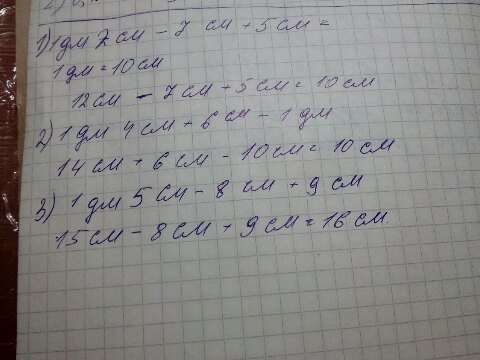 1) 1 дм 2 см - 7 см + 5 см =
1 дм = 10 см
12 см - 7 см + 5 см = 10 см
2) 1 дм 4 см + 6 см - 1 дм
14 см + 6 см - 10 см = 10 см
3) 1 дм 5 см - 8 см + 9 см
15 см - 8 см + 9 см = 16 см.